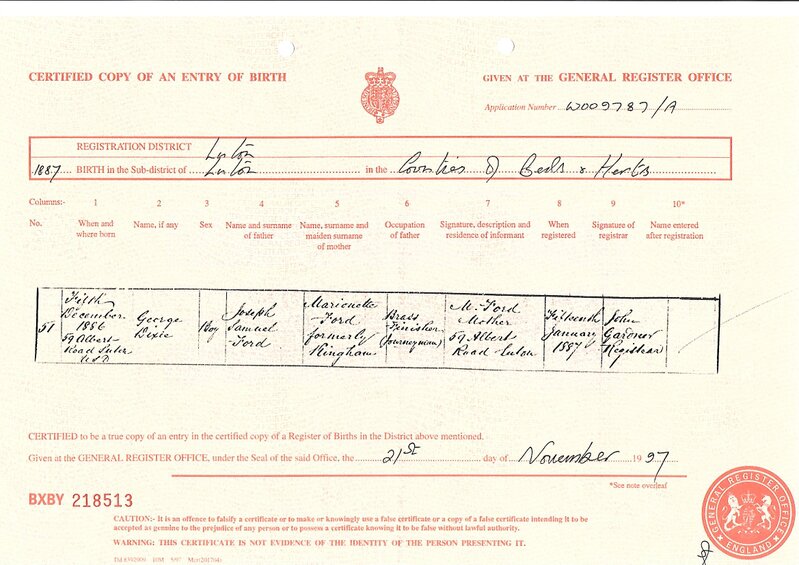 CERTIFIED COPY OF AN ENTRY OF BIRTH
GIVEN AT THE GENERAL REGISTER OFFICE
Application Number W009787/A
REGISTRATION DISTRICT Luton
1887 BIRTH in the Sub-district of Luton in the Counties of Beds & Herts
Columns:- 1 2 3 4 5 6 7 8 9 10*
No. When and where born Name, if any Sex Name and surname of father Name, surname and maiden surname of mother Occupation of father Signature, description and residence of informant When registered Signature of registrar Name entered after registration
51
Fifth
December
1886
59 Albert
Road Luton
U.S.D.
George
Dixie
Boy
Joseph
Samuel
Ford
Marienette
Ford
formerly
Hingham
Brass
Finisher
(Journeyman)
M. Ford
Mother
59 Albert
Road Luton
Fifteenth
January
1887
John
Gardner
Registrar
CERTIFIED to be a true copy of an entry in the certified copy of a Register of Births in the District above mentioned.
Given at the GENERAL REGISTER OFFICE, under the Seal of the said Office, the 21st day of November 1997
*See note overleaf
BXBY 218513
CAUTION:- It is an offence to falsify a certificate or to make or knowingly use a false certificate or a copy of a false certificate intending it to be
accepted as genuine to the prejudice of any person or to possess a certificate knowing it to be false without lawful authority.
WARNING: THIS CERTIFICATE IS NOT EVIDENCE OF THE IDENTITY OF THE PERSON PRESENTING IT.
GENERAL REGISTER OFFICE
ENGLAND